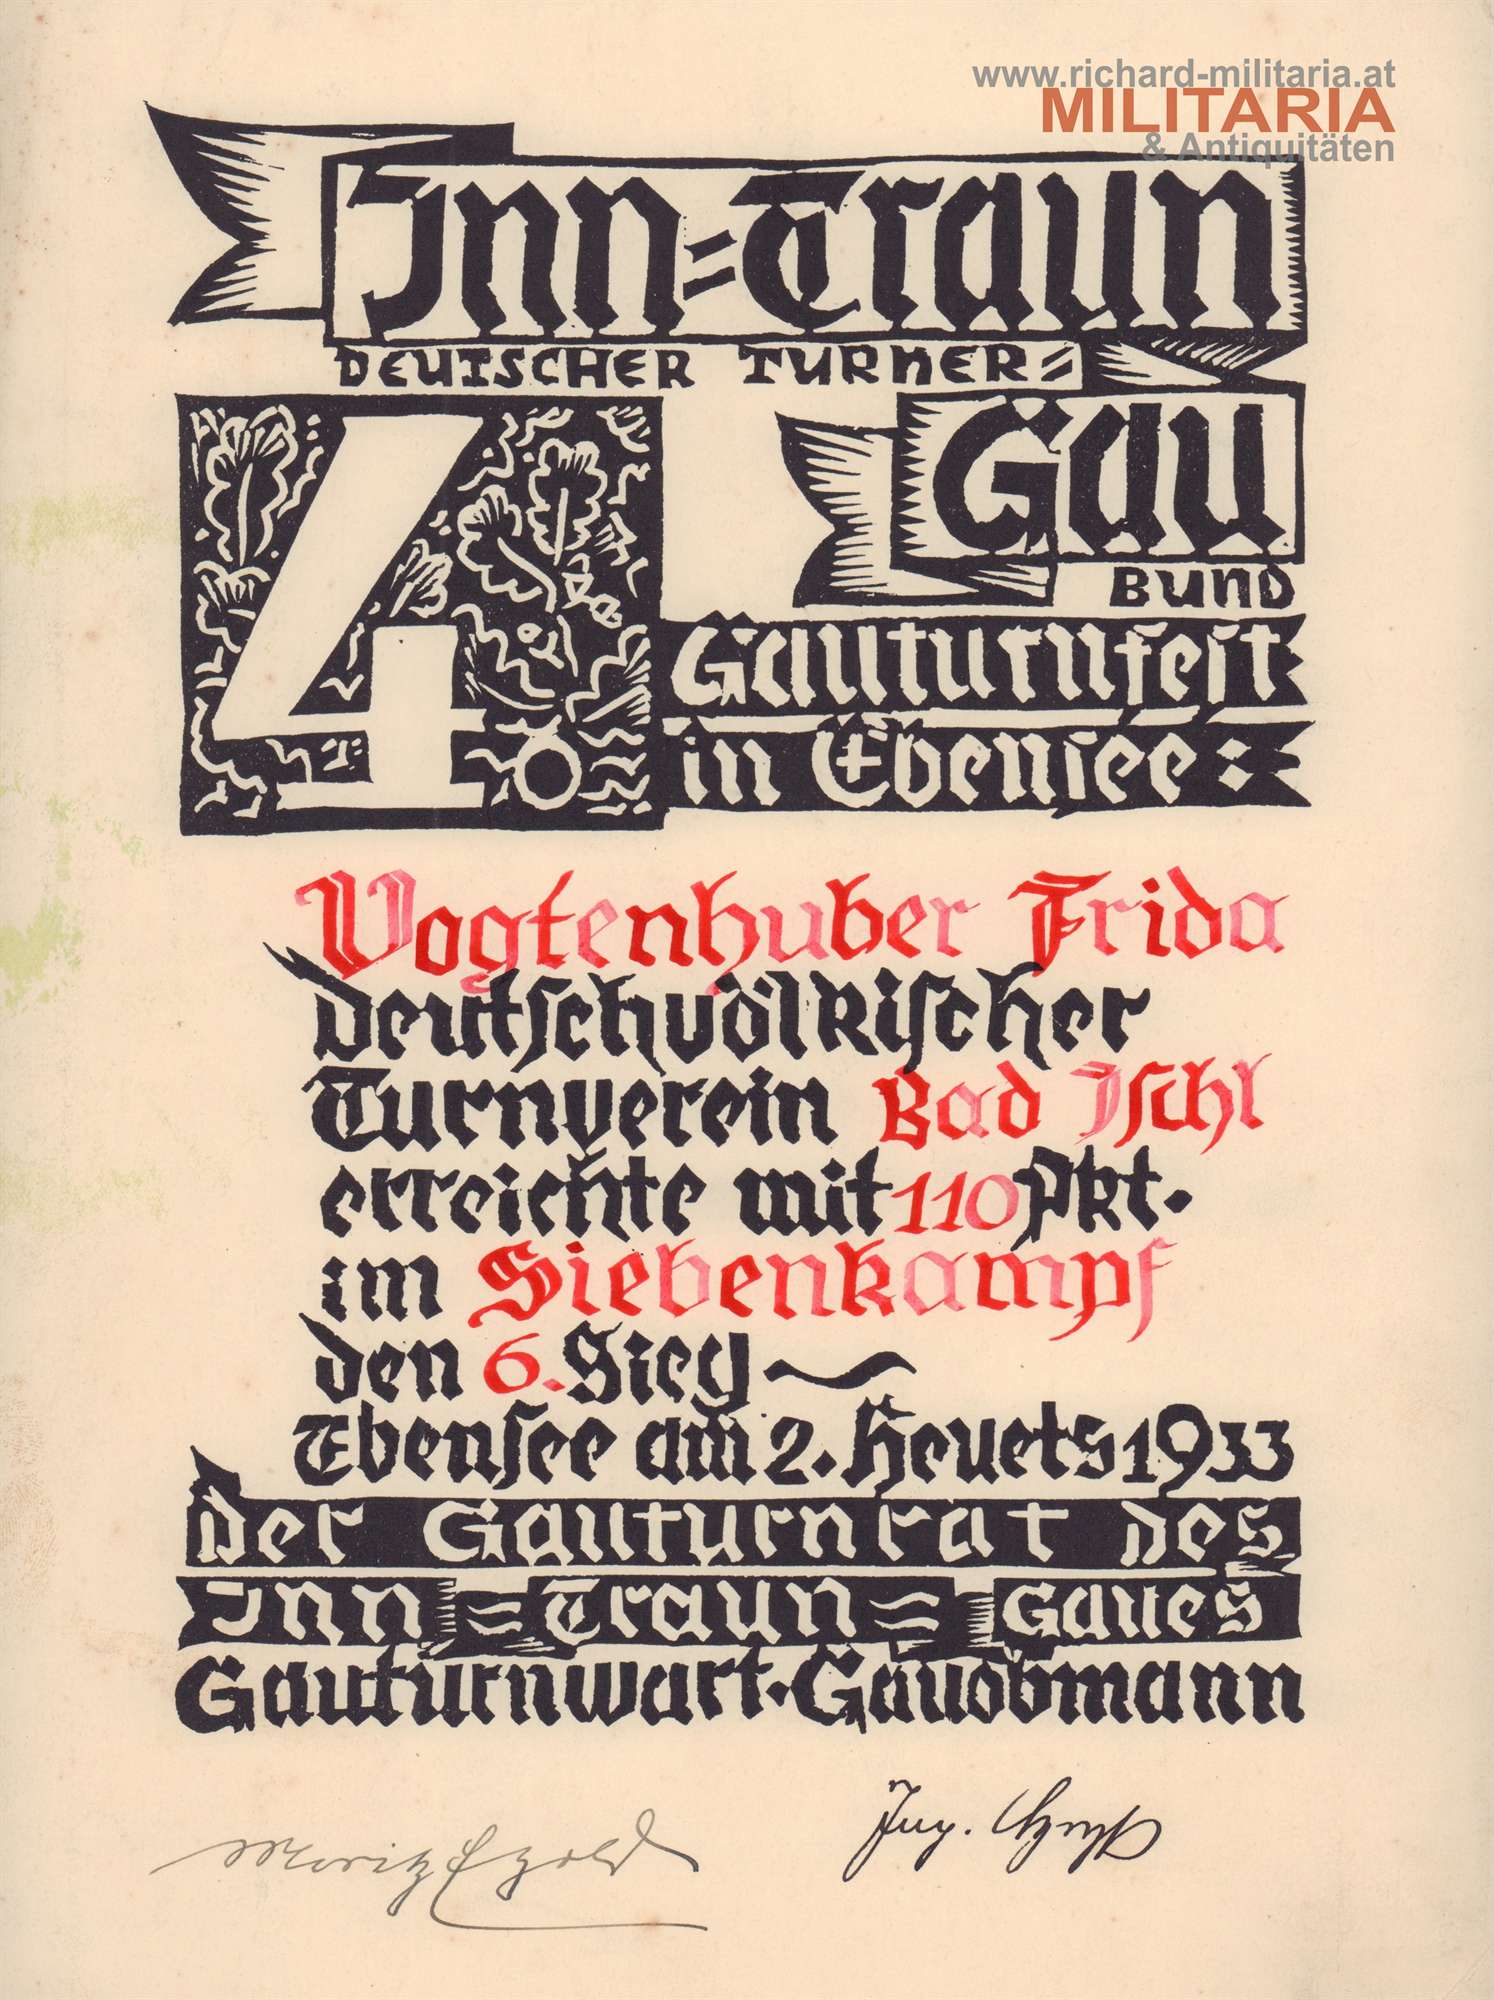 www.richard-militaria.at
MILITARIA
& Antiquitäten
Inn=Traun
DEUTSCHER TURNER=
Gau
BUND
4
Gauturnfest
in Ebensee:
Vogtenhuber Frida
deutschvölkischer
Turnverein Bad Ischl
erreichte mit 110 Pkt.
im Siebenkampf
den 6. Sieg
Ebensee am 2. Heuets 1933
Der Gauturnrat des
Inn=Traun=Gaues
Gauturnwart·Gauobmann
Moritz Ezold
Ing.